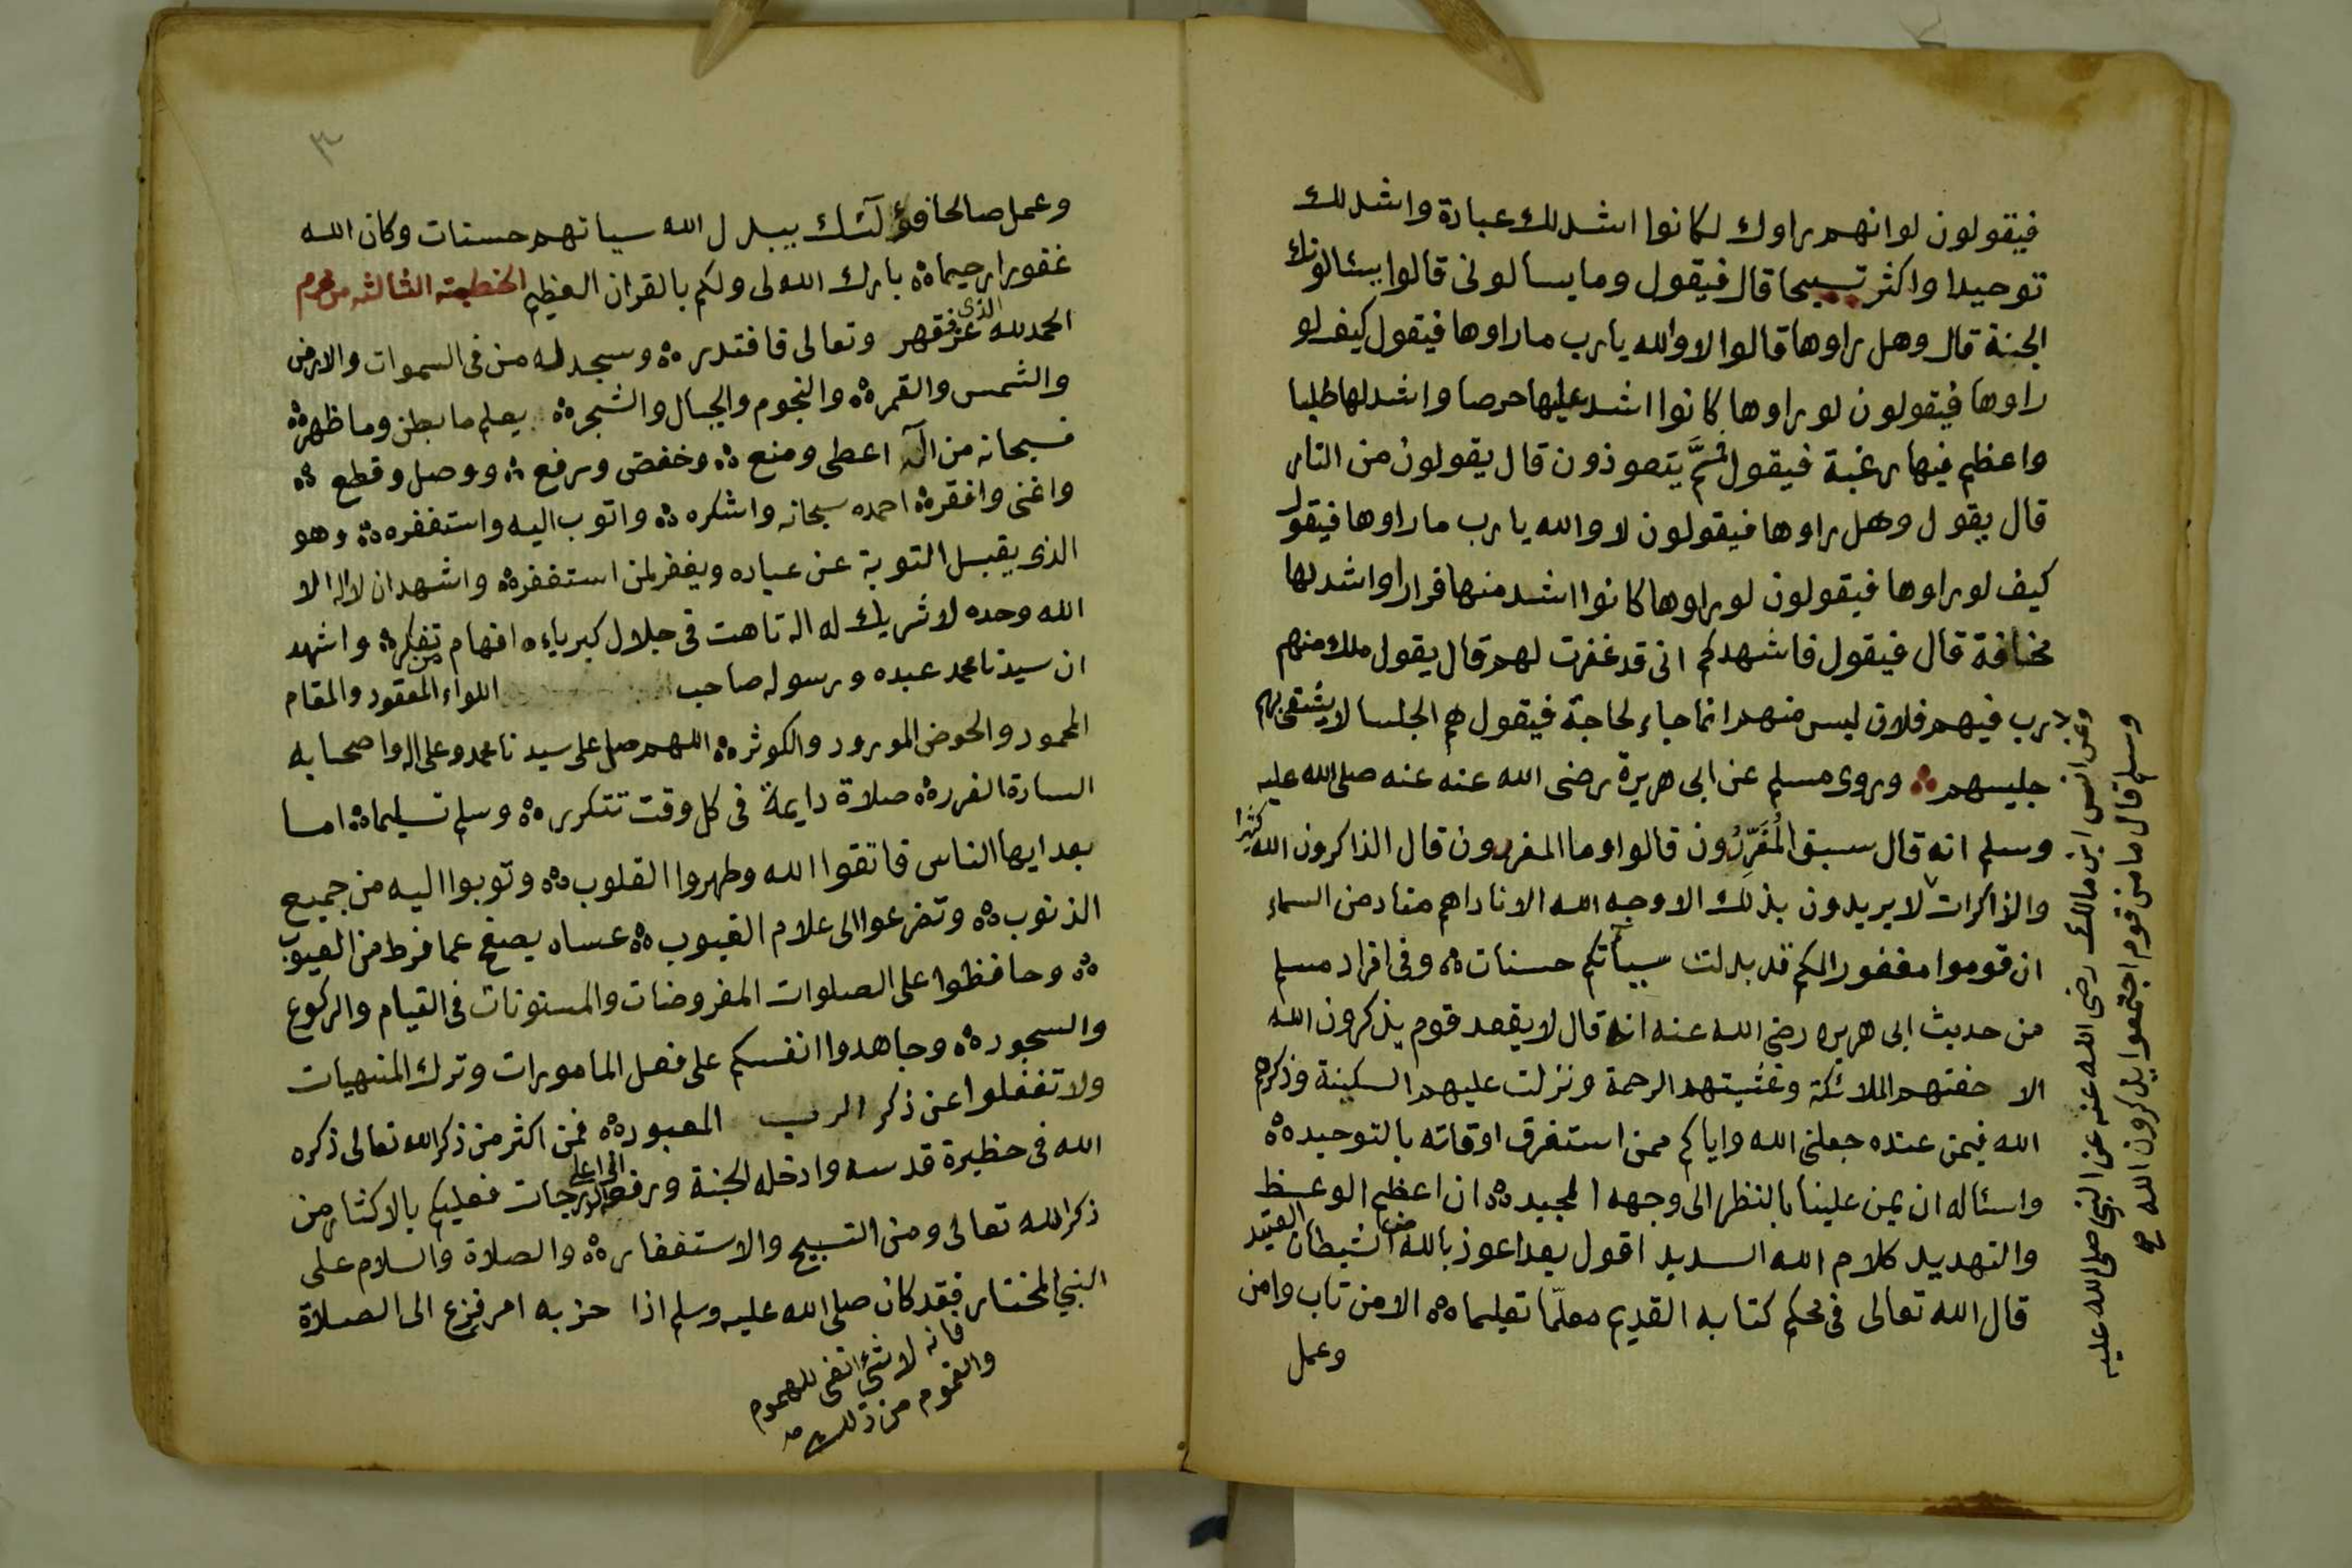 فيقولون لو انهم راوك لكانوا اشد لك عبادة واشد لك
توحيدا واكثر تسبيحا قال فيقول وما يسالوني قالوا يسئالونك
الجنة قال وهل راوها قالوا لا والله يارب ما راوها فيقول كيف لو
راوها فيقولون لو راوها كانوا اشد عليها حرصا واشد لها طلبا
واعظم فيها رغبة فيقول ثمَّ يتعوذون قال يقولون من النار
قال يقول وهل راوها فيقولون لا والله يا رب ما راوها فيقول
كيف لو راوها فيقولون لو راوها كانوا اشد منها فرارا واشد لها
مخافة قال فيقول فاشهدكم انى قد غفرت لهم قال يقول ملك منهم
يارب فيهم فلان ليس منهم انما جاء لحاجة فيقول هم الجلسا لا يشقى بهم
جليسهم وروى مسلم عن ابى هريرة رضى الله عنه عنه صلى الله عليه
وسلم انه قال سبق المُفَرِّدُون قالوا وما المفردون قال الذاكرون الله كثيرا
والذاكرات لا يريدون بذلك الا وجه الله الا ناداهم مناد من السماء
ان قوموا مغفورا لكم قد بدلت سيأتكم حسنات وفى افراد مسلم
من حديث ابى هريره رضى الله عنه انه قال لا يقعد قوم يذكرون الله
الا حفتهم الملائكة وغشيتهم الرحمة ونزلت عليهم السكينة وذكرهم
الله فيمن عنده جعلنى الله واياكم ممن استغرق اوقاته بالتوحيد
واسئاله ان يمن علينا بالنظر الى وجهه المجيد ان اعظم الوعظ
والتهديد كلام الله السديد اقول بعد اعوذ بالله من الشيطان العتيد
قال الله تعالى فى محكم كتابه القديم معلّما تعليما الا من تاب وامن
وعمل
وعن انس ابن مالك رضى الله عنه عن النبى صلى الله عليه
وسلم قال ما من قوم اجتمعوا يذكرون الله صح
٣
وعمل صالحا فؤلٓئك يبدل الله سياتهم حسنات وكان الله
غفورا رحيما بارك الله لى ولكم بالقران العظيم الخطبته الثالثه من محرم
الحمد لله الذى عز فقهر وتعالى فاقتدر وسجد له من فى السموات والارض
والشمس والقمر والنجوم والجبال والشجر يعلم ما بطن وما ظهر
فسبحانه من اله اعطى ومنع وخفض ورفع ووصل وقطع
واغنى وافقر احمده سبحانه واشكره واتوب اليه واستغفره وهو
الذى يقبل التوبة عن عباده ويغفر لمن استغفر واشهد ان لا اله الا
الله وحده لا شريك له اله تاهت فى جلال كبرياءه افهام من تفكر واشهد
ان سيدنا محمد عبده ورسوله صاحب اللواء المعقود والمقام
المحمود والحوض المورود والكوثر اللهم صل على سيدنا محمد وعلى اله واصحابه
السادة الغرر صلاة دايمة فى كل وقت تتكرر وسلم تسليما اما
بعد ايها الناس فاتقوا الله وطهروا القلوب وتوبوا اليه من جميع
الذنوب وتضرعوا الى علام الغيوب عساه يصفح عما فرط من العيوب
وحافظوا على الصلوات المفروضات والمسنونات فى القيام والركوع
والسجود وجاهدوا انفسكم على فعل المامورات وترك المنهيات
ولا تغفلوا عن ذكر الرب المعبود فمن اكثر من ذكر الله تعالى ذكره
الله فى حظيرة قدسه وادخله الجنة ورفعه الى اعلى الدرجات فعليكم بالاكثار من
ذكر الله تعالى ومن التسبيح والاستغفار والصلاة والسلام على
النبى المختار فقد كان صلى الله عليه وسلم اذا حزبه امر فزع الى الصلاة
فانه لا شئ انفى للهموم
والغموم من ذلك